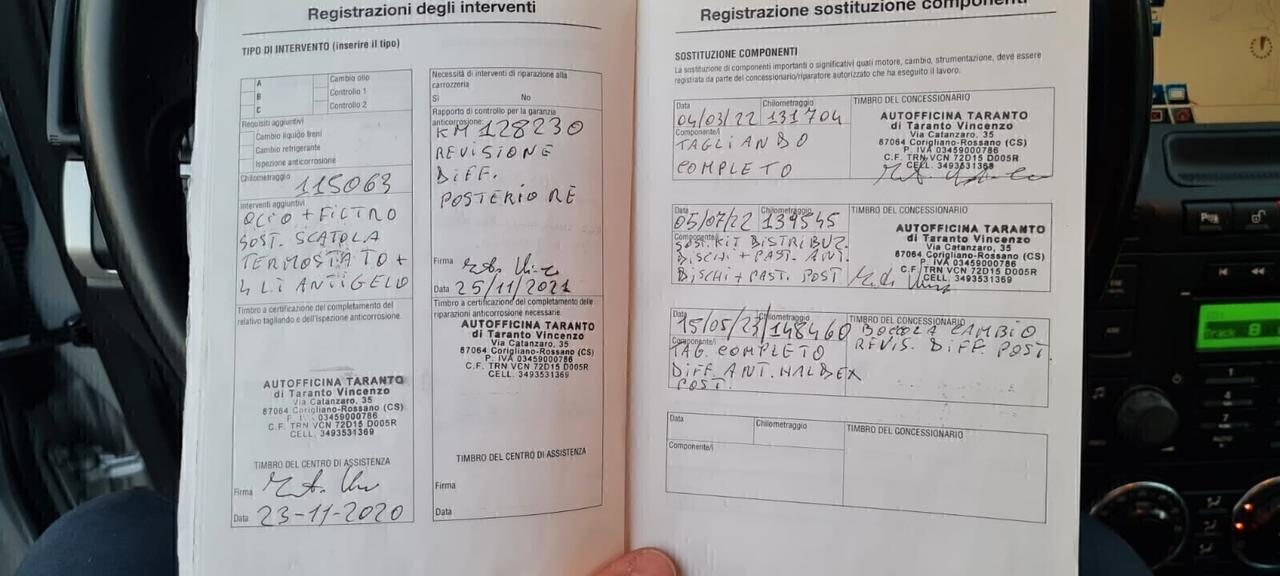 Registrazioni degli interventi
TIPO DI INTERVENTO (inserire il tipo)
A
B
C
Cambio olio
Controllo 1
Controllo 2
Requisiti aggiuntivi
Cambio liquido freni
Cambio refrigerante
Ispezione anticorrosione
Chilometraggio
115063
Interventi aggiuntivi
OLIO + FILTRO
SOST. SCATOLA
TERMOSTATO +
4 LI ANTIGELO
Timbro a certificazione del completamento del
relativo tagliando e dell'ispezione anticorrosione.
AUTOFFICINA TARANTO
di Taranto Vincenzo
Via Catanzaro, 35
87064 Corigliano-Rossano (CS)
P. IVA 03459000786
C.F. TRN VCN 72D15 D005R
CELL. 3493531369
TIMBRO DEL CENTRO DI ASSISTENZA
Firma
Data 23-11-2020
Necessità di interventi di riparazione alla
carrozzeria
Sì No
Rapporto di controllo per la garanzia
anticorrosione:
KM 128230
REVISIONE
DIFF.
POSTERIORE
Firma
Data 25/11/2021
Timbro a certificazione del completamento delle
riparazioni anticorrosione necessarie.
AUTOFFICINA TARANTO
di Taranto Vincenzo
Via Catanzaro, 35
87064 Corigliano-Rossano (CS)
P. IVA 03459000786
C.F. TRN VCN 72D15 D005R
CELL. 3493531369
TIMBRO DEL CENTRO DI ASSISTENZA
Firma
Data
Registrazione sostituzione componenti
SOSTITUZIONE COMPONENTI
La sostituzione di componenti importanti o significativi quali motore, cambio, strumentazione, deve essere
registrata da parte del concessionario/riparatore autorizzato che ha eseguito il lavoro.
Data
04/03/22
Chilometraggio
131704
TIMBRO DEL CONCESSIONARIO
Componente/i
TAGLIANDO
COMPLETO
AUTOFFICINA TARANTO
di Taranto Vincenzo
Via Catanzaro, 35
87064 Corigliano-Rossano (CS)
P. IVA 03459000786
C.F. TRN VCN 72D15 D005R
CELL. 3493531369
Data
05/07/22
Chilometraggio
139545
TIMBRO DEL CONCESSIONARIO
Componente/i
SOST. KIT DISTRIBUZ.
DISCHI + PAST. ANT.
DISCHI + PAST. POST
AUTOFFICINA TARANTO
di Taranto Vincenzo
Via Catanzaro, 35
87064 Corigliano-Rossano (CS)
P. IVA 03459000786
C.F. TRN VCN 72D15 D005R
CELL. 3493531369
Data
15/05/23
Chilometraggio
148460
TIMBRO DEL CONCESSIONARIO
BOCCOLA CAMBIO
REVIS. DIFF. POST.
Componente/i
TAG. COMPLETO
DIFF. ANT. HALDEX
POST.
Data
Chilometraggio
TIMBRO DEL CONCESSIONARIO
Componente/i
Track 8
1
4
7